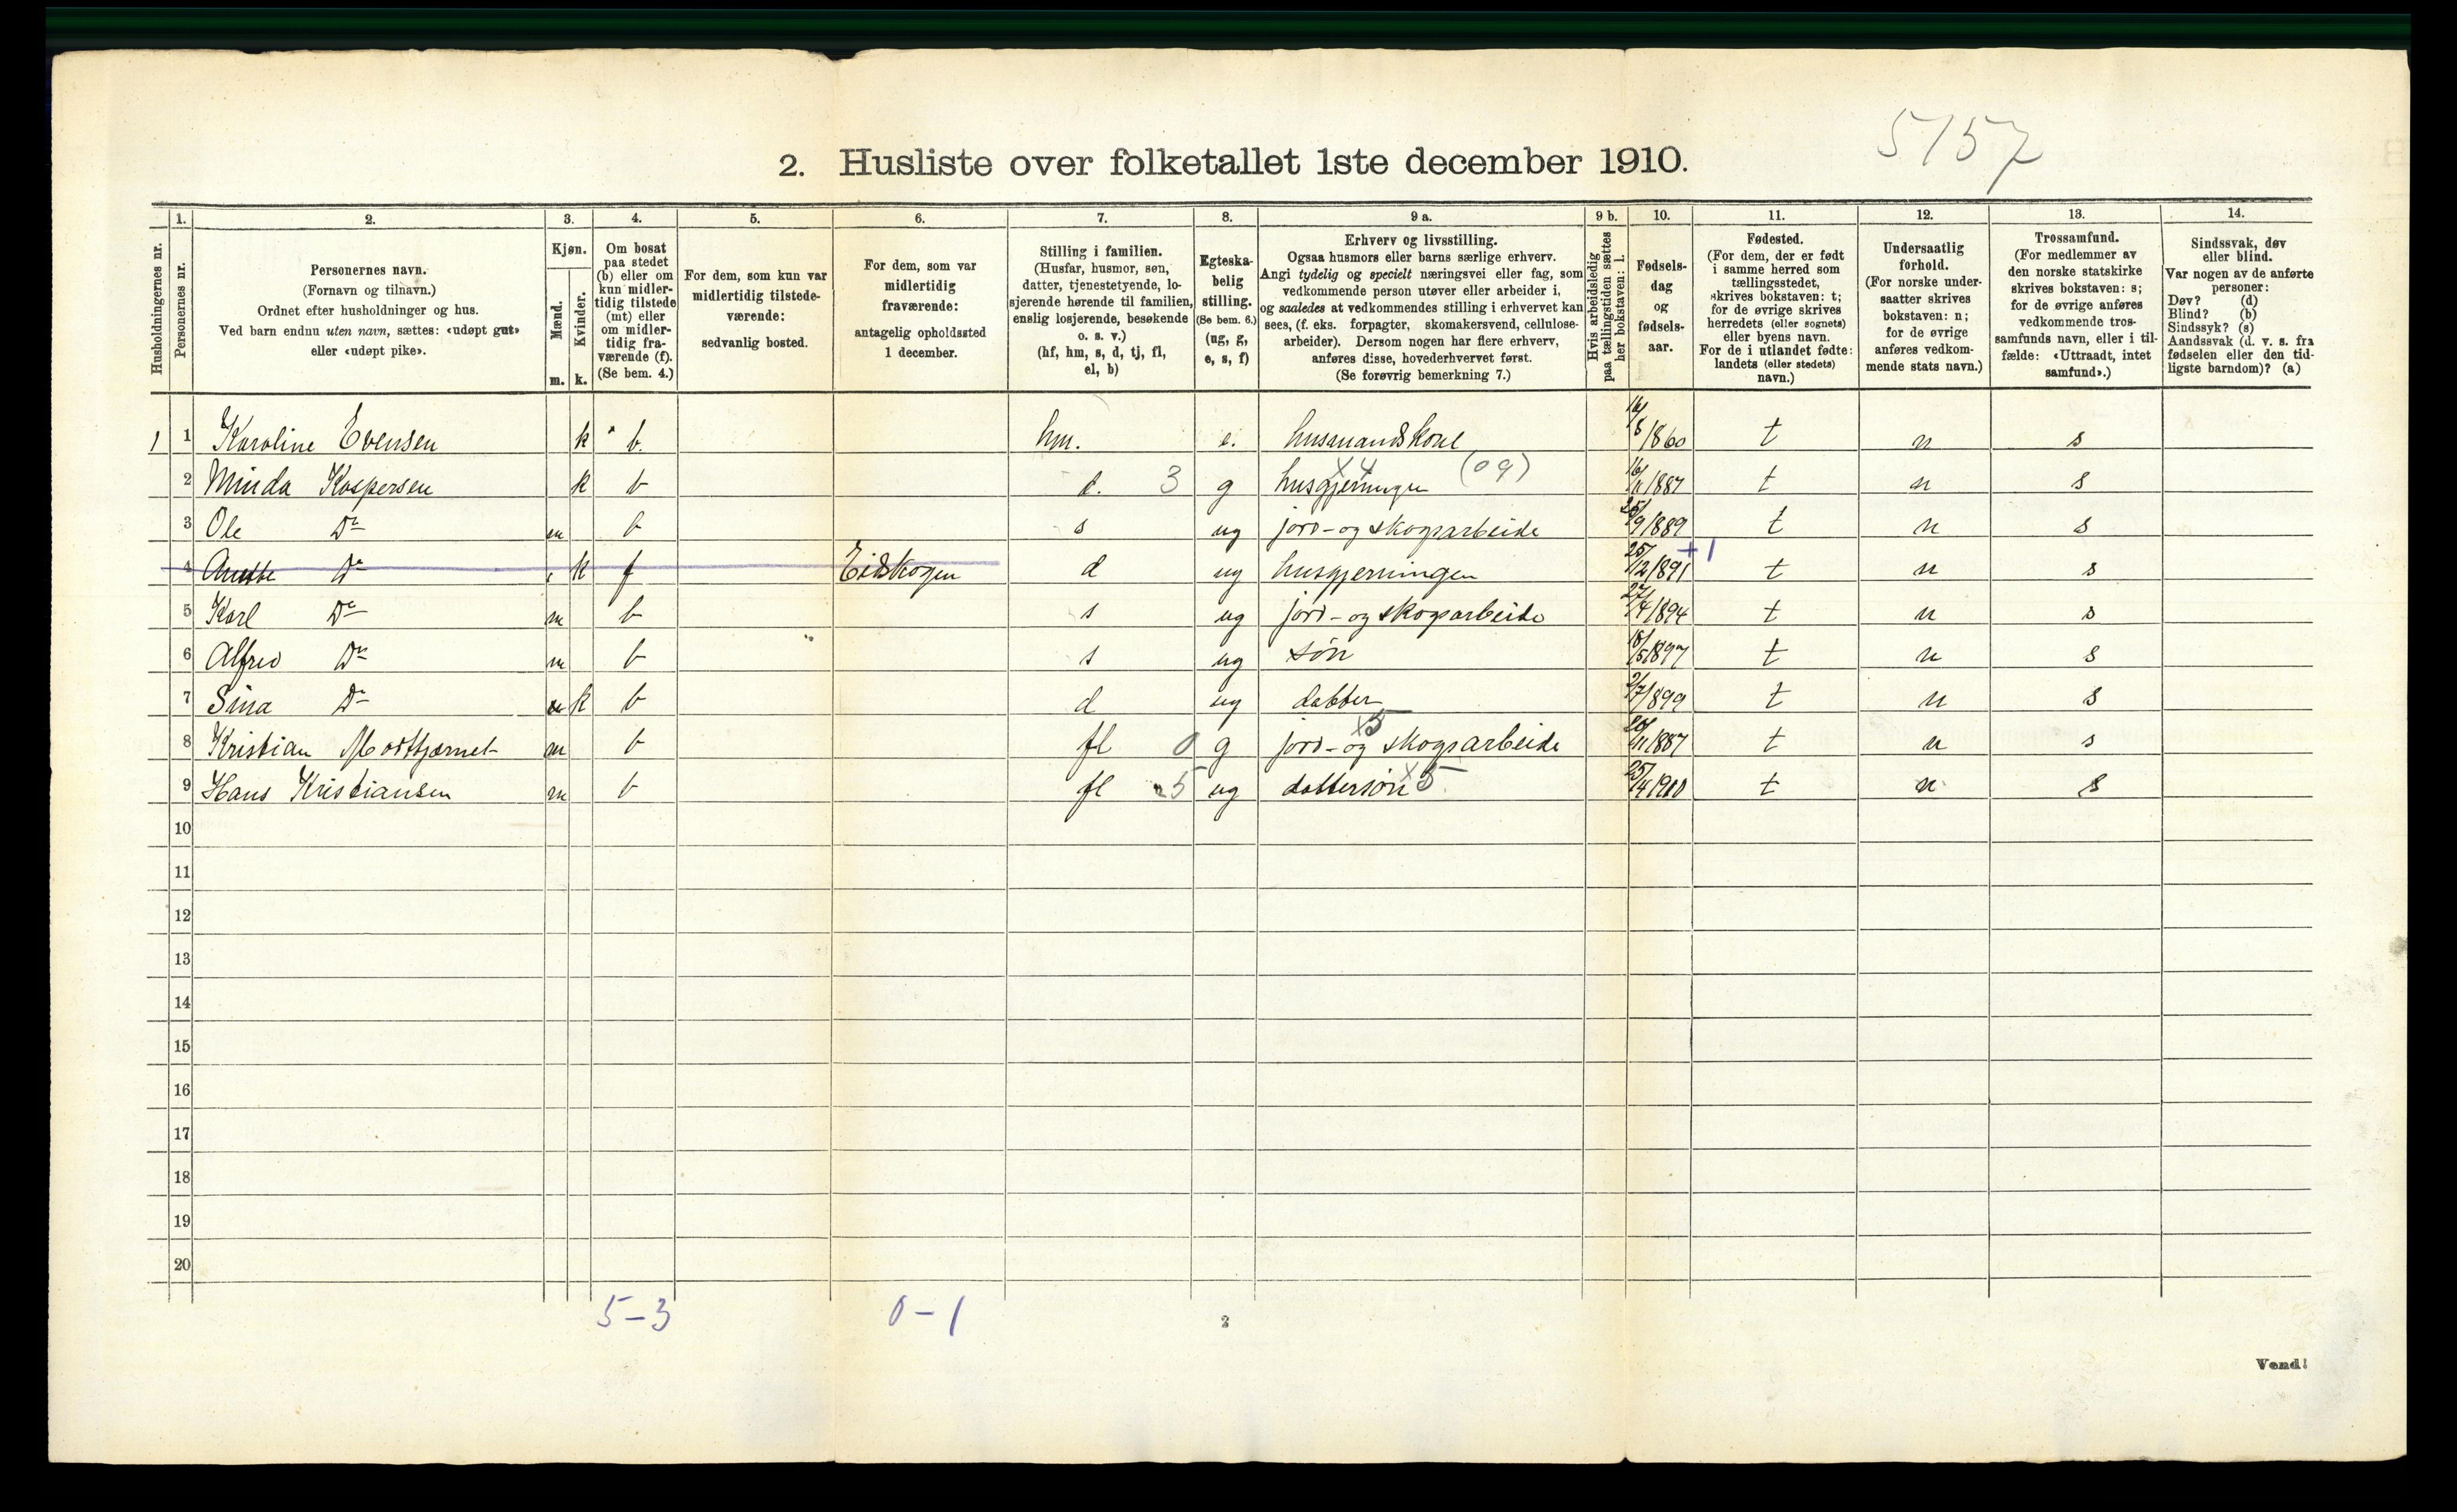 5157
2. Husliste over folketallet 1ste december 1910.
Husholdningernes nr.
1.
Personernes nr.
2.
Personernes navn.
(Fornavn og tilnavn.)
Ordnet efter husholdninger og hus.
Ved barn endnu uten navn, sættes: «udøpt gut»
eller «udøpt pike».
3.
Kjøn.
Mænd.
Kvinder.
m. k.
4.
Om bosat
paa stedet
(b) eller om
kun midler-
tidig tilstede
(mt) eller
om midler-
tidig fra-
værende (f).
(Se bem. 4.)
5.
For dem, som kun var
midlertidig tilstede-
værende:
sedvanlig bosted.
6.
For dem, som var
midlertidig
fraværende:
antagelig opholdssted
1 december.
7.
Stilling i familien.
(Husfar, husmor, søn,
datter, tjenestetyende, lo-
sjerende hørende til familien,
enslig losjerende, besøkende
o. s. v.)
(hf, hm, s, d, tj, fl,
el, b)
8.
Egteska-
belig
stilling.
(Se bem. 6.)
(ug, g,
e, s, f)
9 a.
Erhverv og livsstilling.
Ogsaa husmors eller barns særlige erhverv.
Angi tydelig og specielt næringsvei eller fag, som
vedkommende person utøver eller arbeider i,
og saaledes at vedkommendes stilling i erhvervet kan
sees, (f. eks. forpagter, skomakersvend, cellulose-
arbeider). Dersom nogen har flere erhverv,
anføres disse, hovederhvervet først.
(Se forøvrig bemerkning 7.)
9 b.
Hvis arbeidsledig
paa tællingstiden sættes
her bokstaven: l.
10.
Fødsels-
dag
og
fødsels-
aar.
11.
Fødested.
(For dem, der er født
i samme herred som
tællingsstedet,
skrives bokstaven: t;
for de øvrige skrives
herredets (eller sognets)
eller byens navn.
For de i utlandet fødte:
landets (eller stedets)
navn.)
12.
Undersaatlig
forhold.
(For norske under-
saatter skrives
bokstaven: n;
for de øvrige
anføres vedkom-
mende stats navn.)
13.
Trossamfund.
(For medlemmer av
den norske statskirke
skrives bokstaven: s;
for de øvrige anføres
vedkommende tros-
samfunds navn, eller i til-
fælde: «Uttraadt, intet
samfund».)
14.
Sindssvak, døv
eller blind.
Var nogen av de anførte
personer:
Døv? (d)
Blind? (b)
Sindssyk? (s)
Aandssvak (d. v. s. fra
fødselen eller den tid-
ligste barndom)? (a)
1 1 Karoline Evensen k b. hm. e. husmandskone 16/8 1860 t n s
2 Minda Kaspersen k b d. 3 g husgjerningen x4 (09) 16/11 1887 t n s
3 Ole Do m b s ug jord- og skogsarbeide 25/9 1889 t n s
4 Anette Do k f Eidskogen d ug husgjerningen 25/12 1891 +1 t n s
5 Karl Do m b s ug jord- og skogsarbeide 27/4 1894 t n s
6 Alfred Do m b s ug søn 18/5 1897 t n s
7 Sina Do k b d ug datter 2/7 1899 t n s
8 Kristian Mosttjernet m b fl 0 g jord- og skogsarbeide x5 20/11 1887 t n s
9 Hans Kristiansen m b fl 5 ug dattersøn x5 25/4 1910 t n s
10
11
12
13
14
15
16
17
18
19
20
5-3 0-1
2
Vend!